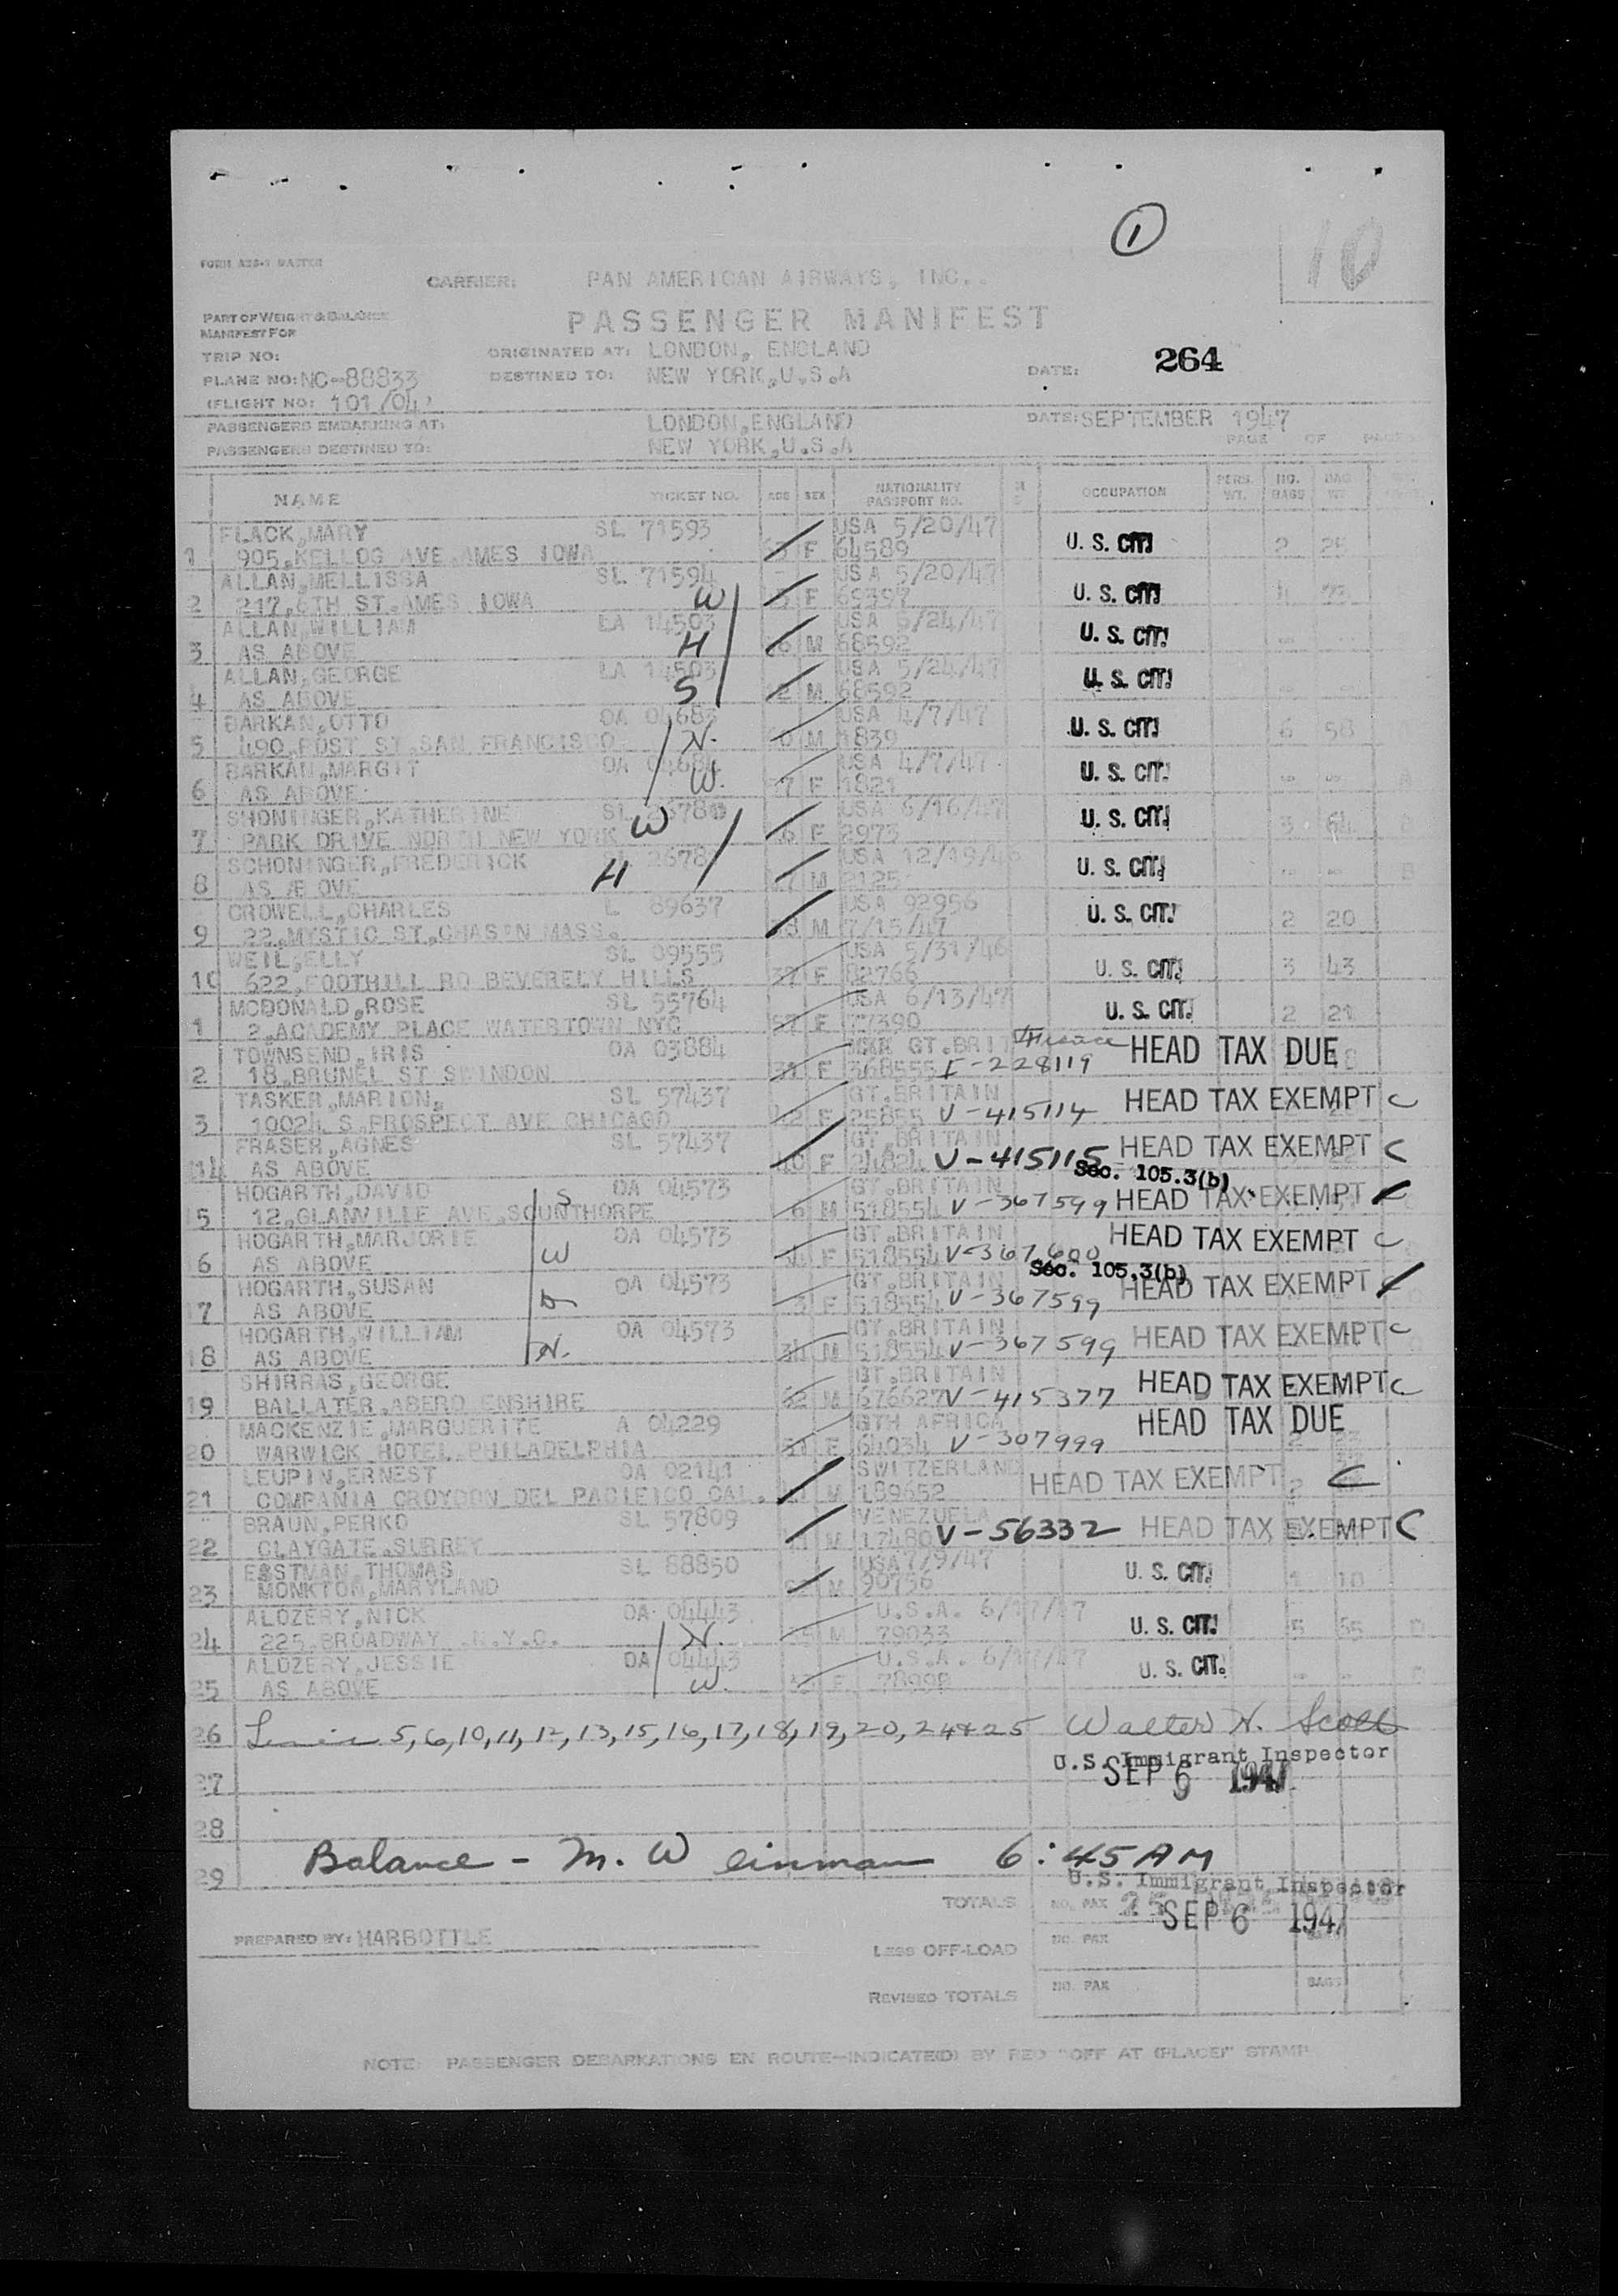 1
10
FORM
CARRIER: PAN AMERICAN AIRWAYS, INC..
PART OF WEIGHT & BALANCE
MANIFEST FOR
PASSENGER MANIFEST
TRIP NO:
ORIGINATED AT: LONDON, ENGLAND
264
PLANE NO: NC-88833
DESTINED TO: NEW YORK,U.S.A
DATE:
(FLIGHT NO: 101/04)
PASSENGERS EMBARKING AT: LONDON,ENGLAND
DATE: SEPTEMBER 1947
PASSENGERS DESTINED TO: NEW YORK,U.S.A
PAGE OF PAGES
NAME TICKET NO. AGE SEX NATIONALITY PASSPORT NO. OCCUPATION PERS. WT. NO. BAGS BAG WT.
FLACK,MARY SL 71593 USA 5/20/47
1 905,KELLOG AVE,AMES IOWA F 64589 U. S. CIT. 2
ALLAN,MELLISSA SL 71594 USA 5/20/47
2 217,6TH ST.AMES IOWA W F U. S. CIT.
ALLAN,WILLIAM LA 14503 USA 5/24/47
3 AS ABOVE H M 68592 U. S. CIT.
ALLAN,GEORGE LA 14503 USA 5/24/47
4 AS ABOVE S M 68592 U. S. CIT.
BARKAN,OTTO OA 04683 USA 4/7/47
5 490,POST ST.SAN FRANCISCO H. M 1839 U. S. CIT. 6 58
BARKAN,MARGIT OA 04684 USA 4/7/47
6 AS ABOVE W. F 1821 U. S. CIT.
SHONINGER,KATHERINE SL USA 6/16/47
7 PARK DRIVE NORTH NEW YORK W F 2973 U. S. CIT. 3 64
SCHONINGER,FREDERICK USA 12/19/46
8 AS ABOVE H M 2125 U. S. CIT.
CROWELL,CHARLES L 89637 USA 92956
9 22,MYSTIC ST,CHASEN MASS. M 7/15/47 U. S. CIT. 2 20
WEIL,ELLY SL 09555 USA 5/31/46
10 622,FOOTHILL RD BEVERELY HILLS 37 F 82766 U. S. CIT. 3 43
MCDONALD,ROSE SL 55764 USA 6/13/47
1 2,ACADEMY PLACE WATERTOWN NYC 57 F 77390 U. S. CIT. 2 21
TOWNSEND,IRIS OA 03884 GT.BRIT HEAD TAX DUE
2 18,BRUNEL ST SWINDON 31 F 368555 I-228119
TASKER,MARION, SL 57437 GT.BRITAIN HEAD TAX EXEMPT C
3 10024 S.PROSPECT AVE CHICAGO 42 F 25855 V-415114
FRASER,AGNES SL 57437 GT.BRITAIN HEAD TAX EXEMPT C
14 AS ABOVE 40 F V-415115 Sec. 105.3(b)
HOGARTH,DAVID S OA 04573 GT.BRITAIN
15 12,GLANVILLE AVE,SCUNTHORPE 6 M 518554 V-367599 HEAD TAX EXEMPT C
HOGARTH,MARJORIE OA 04573 GT.BRITAIN HEAD TAX EXEMPT C
6 AS ABOVE W F 518554 V-367600 Sec. 105.3(b)
HOGARTH,SUSAN OA 04573 GT.BRITAIN HEAD TAX EXEMPT C
17 AS ABOVE D F 518554 V-367599
HOGARTH,WILLIAM OA 04573 GT.BRITAIN HEAD TAX EXEMPT C
18 AS ABOVE H. M 518554 V-367599
SHIRRAS,GEORGE GT.BRITAIN HEAD TAX EXEMPT C
19 BALLATER,ABERD ENSHIRE 62 M 676627 V-415377
MACKENZIE,MARGUERITE A 04229 STH AFRICA HEAD TAX DUE
20 WARWICK HOTEL PHILADELPHIA F 64034 V-307999
LEUPIN,ERNEST OA 02141 SWITZERLAND HEAD TAX EXEMPT C
21 COMPANIA CROYDON DEL PACIFICO CAL. M 189652
BRAUN,PERKO SL 57809 VENEZUELA HEAD TAX EXEMPT C
22 CLAYGATE,SURREY M 17480 V-56332
EASTMAN,THOMAS SL 88850 USA7/9/47 U. S. CIT.
23 MONKTON,MARYLAND 52 M 90756 1 10
ALOZERY,NICK OA 04443 U.S.A. 6/17/47
24 225,BROADWAY .N.Y.C. H. M 79033 U. S. CIT. 5
ALOZERY,JESSIE OA 04443 U.S.A. 6/17/47
25 AS ABOVE W. F 78998 U. S. CIT.
26 Lines 5,6,10,11,12,13,15,16,17,18,19,20,24&25 Walter H. Scott
U.S. Immigrant Inspector
27 SEP 6 1947
28
29 Balance - M. Weinman 6:45 AM
U.S. Immigrant Inspector
TOTALS NO. PAX 25 SEP 6 1947
PREPARED BY: HARBOTTLE
LESS OFF-LOAD NO. PAX
REVISED TOTALS NO. PAX BAGS
NOTE: PASSENGER DEBARKATIONS EN ROUTE—INDICATE(D) BY RED "OFF AT (PLACE)" STAMP